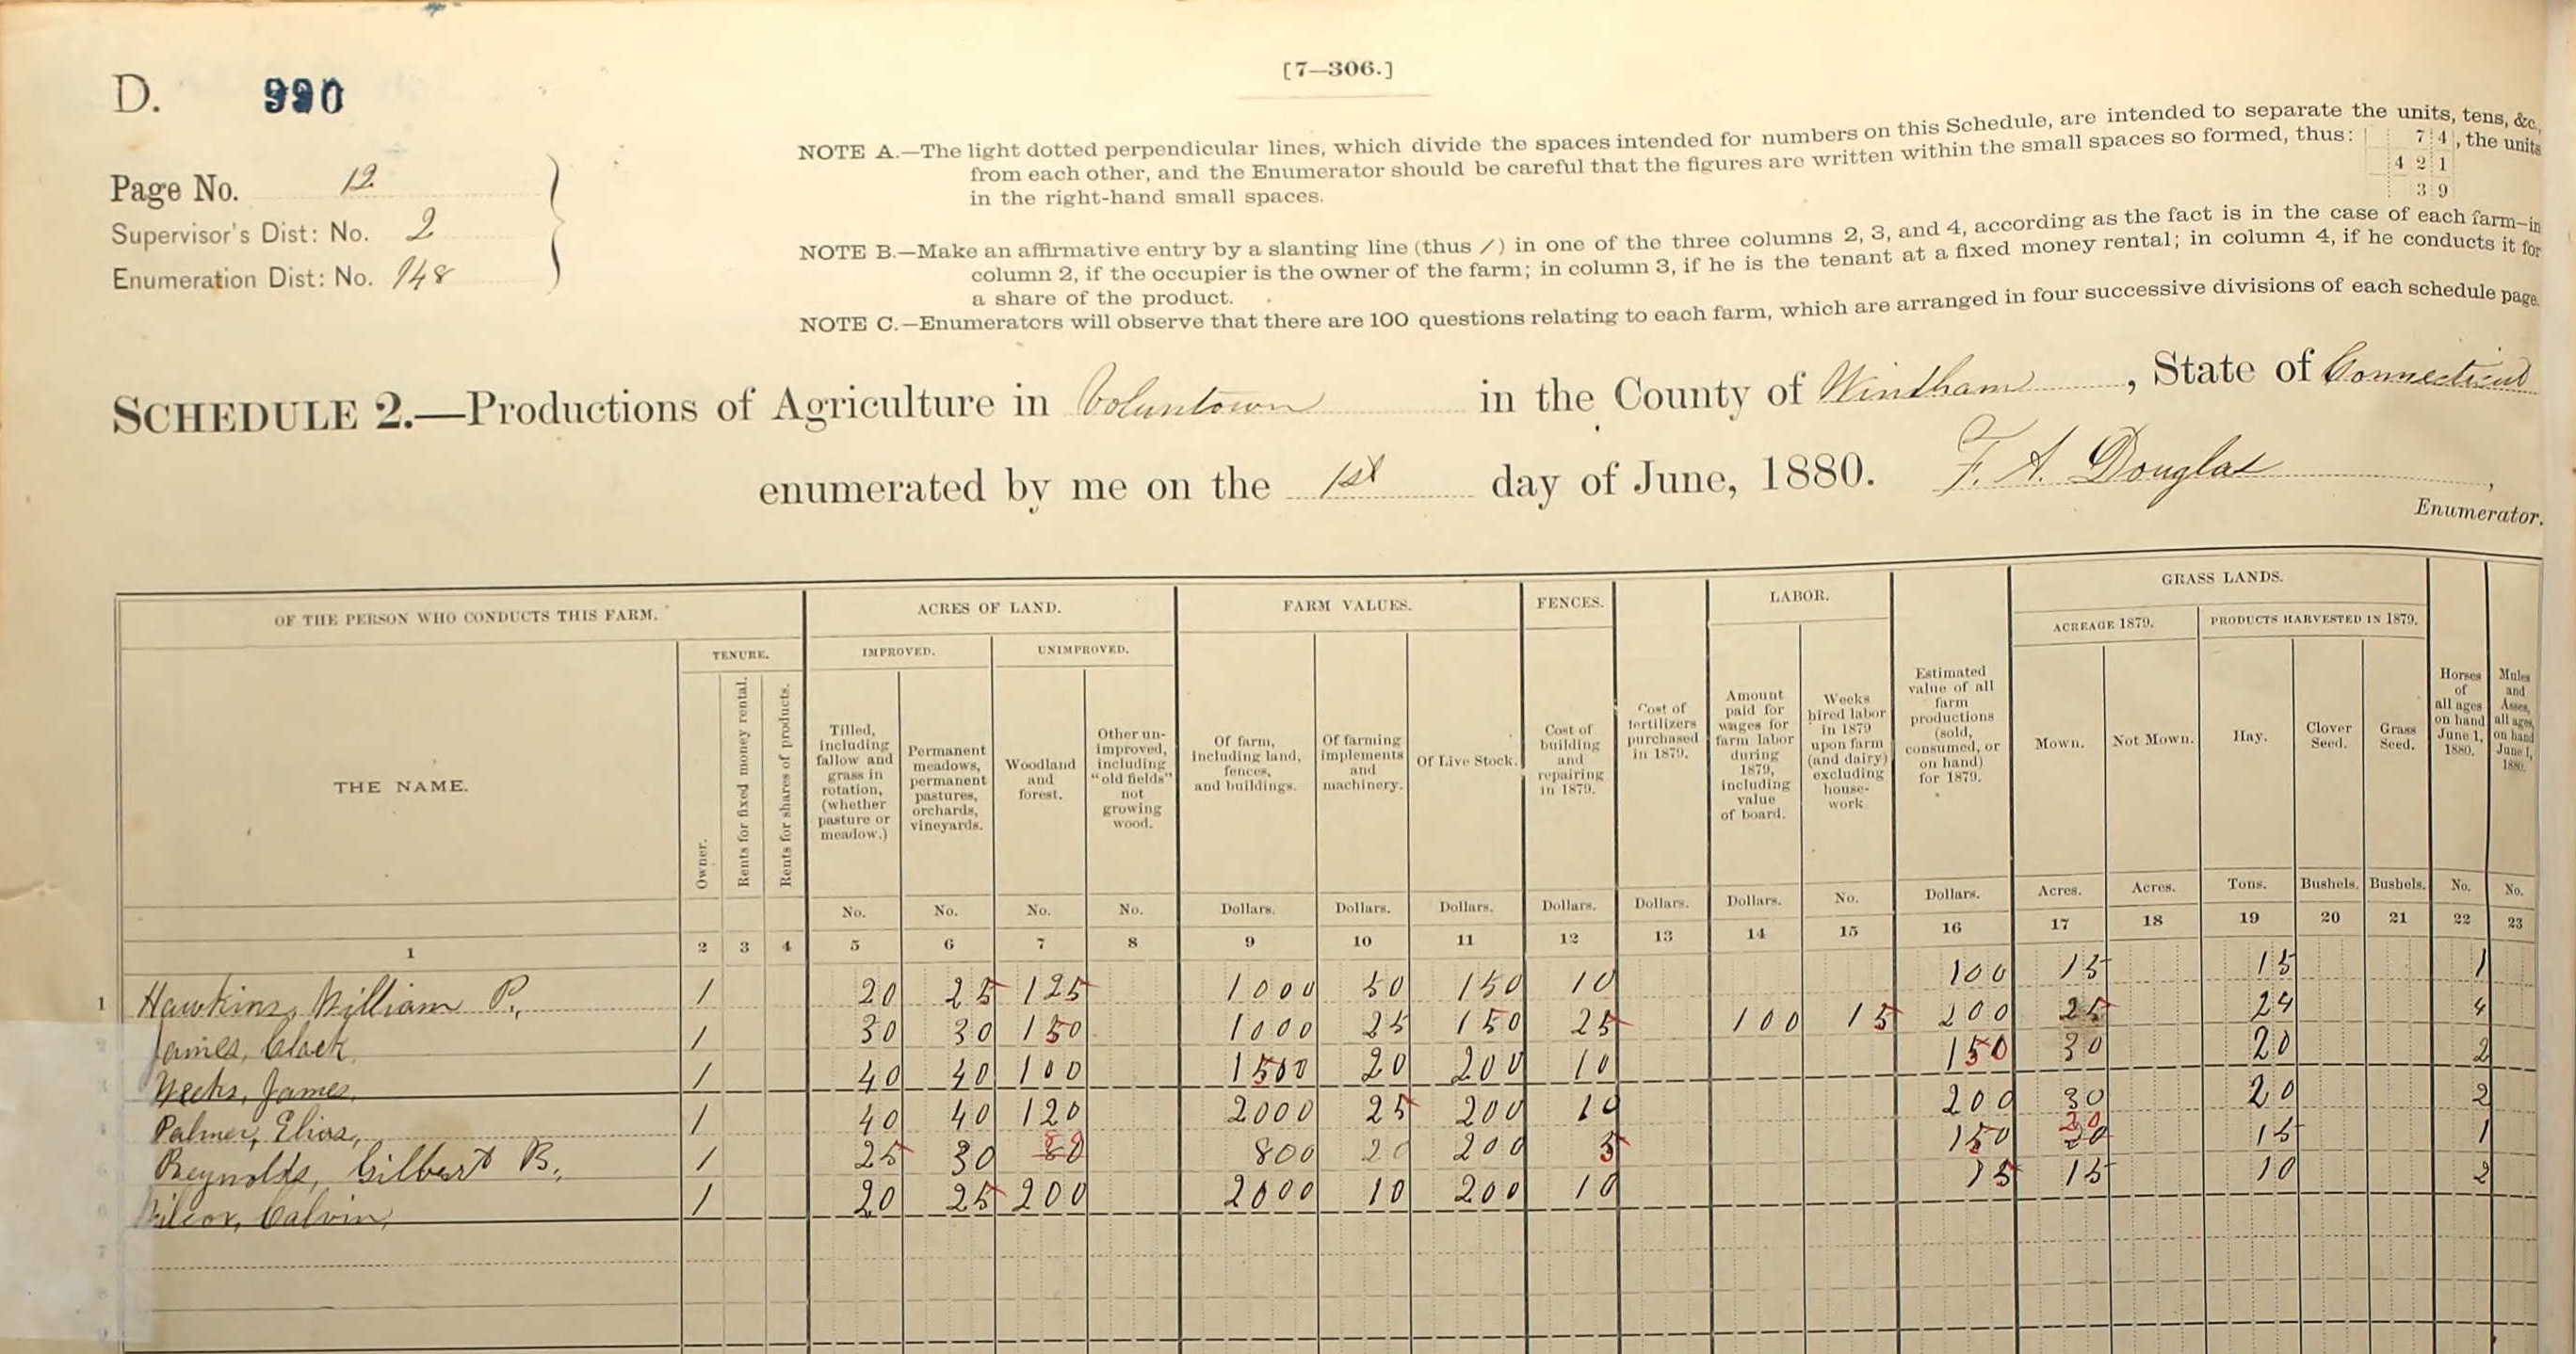 D. 990
[7—306.]
Page No. 12
Supervisor's Dist: No. 2
Enumeration Dist: No. 148
NOTE A.—The light dotted perpendicular lines, which divide the spaces intended for numbers on this Schedule, are intended to separate the units, tens, &c.,
from each other, and the Enumerator should be careful that the figures are written within the small spaces so formed, thus: 7 4, the units
4 2 1
in the right-hand small spaces. 3 9
NOTE B.—Make an affirmative entry by a slanting line (thus /) in one of the three columns 2, 3, and 4, according as the fact is in the case of each farm—in
column 2, if the occupier is the owner of the farm; in column 3, if he is the tenant at a fixed money rental; in column 4, if he conducts it for
a share of the product.
NOTE C.—Enumerators will observe that there are 100 questions relating to each farm, which are arranged in four successive divisions of each schedule page.
SCHEDULE 2.—Productions of Agriculture in Voluntown in the County of Windham, State of Connecticut
enumerated by me on the 1st day of June, 1880. F. A. Douglas,
Enumerator.
OF THE PERSON WHO CONDUCTS THIS FARM. ACRES OF LAND. FARM VALUES. FENCES. LABOR. GRASS LANDS.
TENURE. IMPROVED. UNIMPROVED. ACREAGE 1879. PRODUCTS HARVESTED IN 1879.
THE NAME.
Owner.
Rents for fixed money rental.
Rents for shares of products.
Tilled, including fallow and grass in rotation, (whether pasture or meadow.)
Permanent meadows, permanent pastures, orchards, vineyards.
Woodland and forest.
Other un-improved, including "old fields" not growing wood.
Of farm, including land, fences, and buildings.
Of farming implements and machinery.
Of Live Stock.
Cost of building and repairing in 1879.
Cost of fertilizers purchased in 1879.
Amount paid for wages for farm labor during 1879, including value of board.
Weeks hired labor in 1879 upon farm (and dairy) excluding house-work.
Estimated value of all farm productions (sold, consumed, or on hand) for 1879.
Mown.
Not Mown.
Hay.
Clover Seed.
Grass Seed.
Horses of all ages on hand June 1, 1880.
Mules and Asses, all ages, on hand June 1, 1880.
No. No. No. No. Dollars. Dollars. Dollars. Dollars. Dollars. Dollars. No. Dollars. Acres. Acres. Tons. Bushels. Bushels. No. No.
1 2 3 4 5 6 7 8 9 10 11 12 13 14 15 16 17 18 19 20 21 22 23
1 Hawkins, William P., / 20 25 125 1000 50 150 10 100 15 15 1
James, Clark / 30 30 150 1000 25 150 25 100 15 200 25 24 4
James, / 40 40 100 1500 20 200 10 150 30 20 2
Palmer, Elias, / 40 40 120 2000 25 200 10 200 30 20 2
Reynolds, Gilbert B, / 25 30 800 20 200 5 150 20 15 1
Wilcox, Calvin, / 20 25 200 2000 10 200 10 15 15 10 2
7
8
9